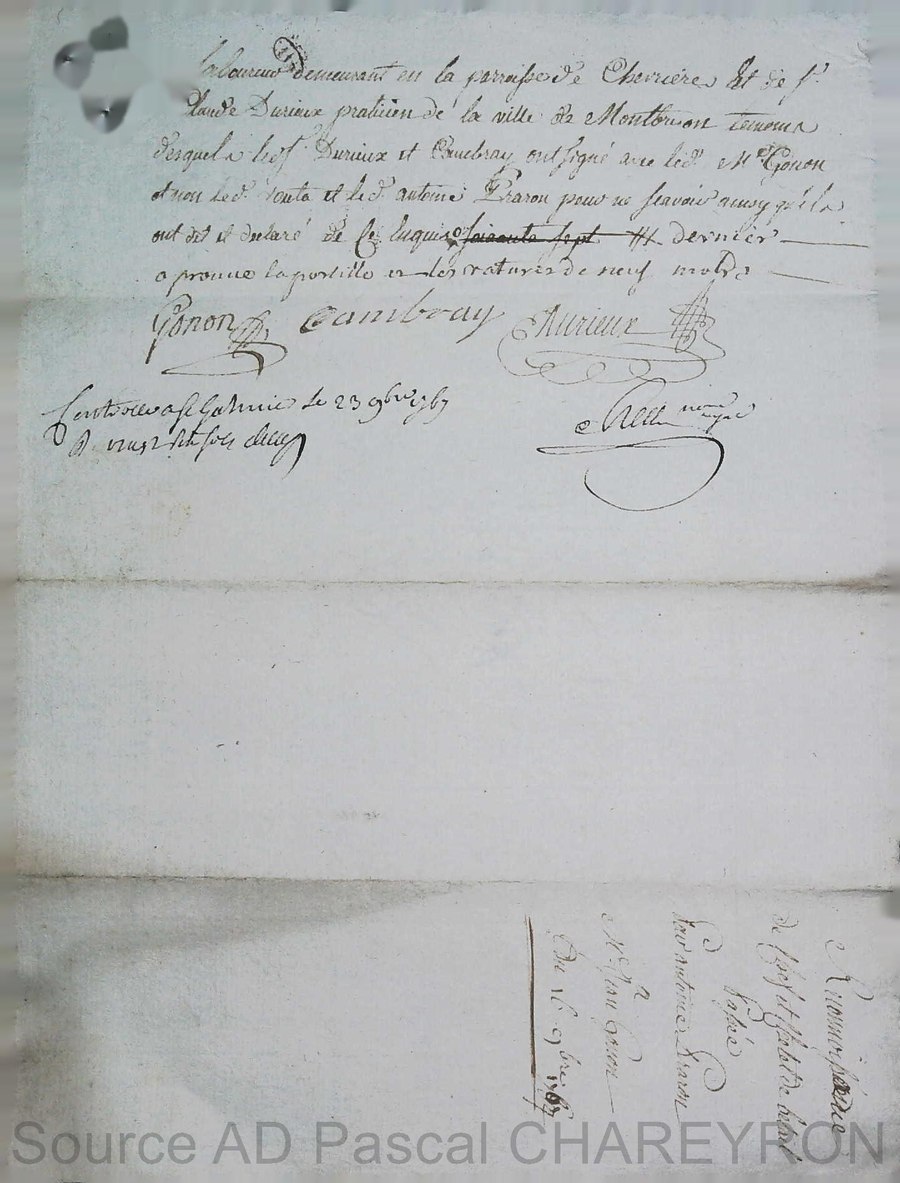 laboureur demeurant en la parroisse de Chevriere Et de sr
Claude Durieux praticien de la ville de Montbrison temoins
desquels lesd. Durieux et Cambray ont signé avec led. Me Gonon
et non led. et led. antoine Pharon pour ne scavoir ainsy qu'ils
ont dit et declaré de ce enquis soixante sept dernier
aprouve lapostille et les ratures de neuf mots
Gonon Cambray Durieux
Controllé a St Galmier le 23 9bre 1767
R vingt sols
notaire royal
Reconnoissance
de
Passé
Par antoine Pharon
A
Me Jean Gonon
Du 16 9bre 1767
Source AD Pascal CHAREYRON